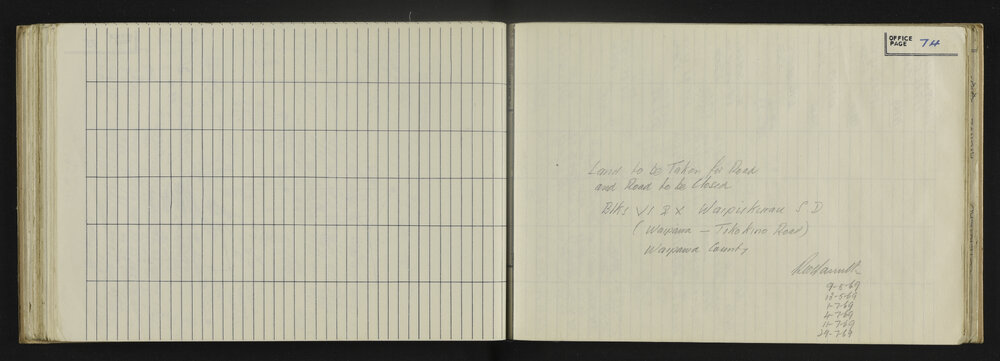 OFFICE
PAGE 74
Land to be Taken for Road
and Road to be Closed
Blks VI & X Waipukurau S D
(Waipawa – Tikokino Road)
Waipawa County
9-5-69
13-5-69
1-7-69
4-7-69
11-7-69
29-7-69